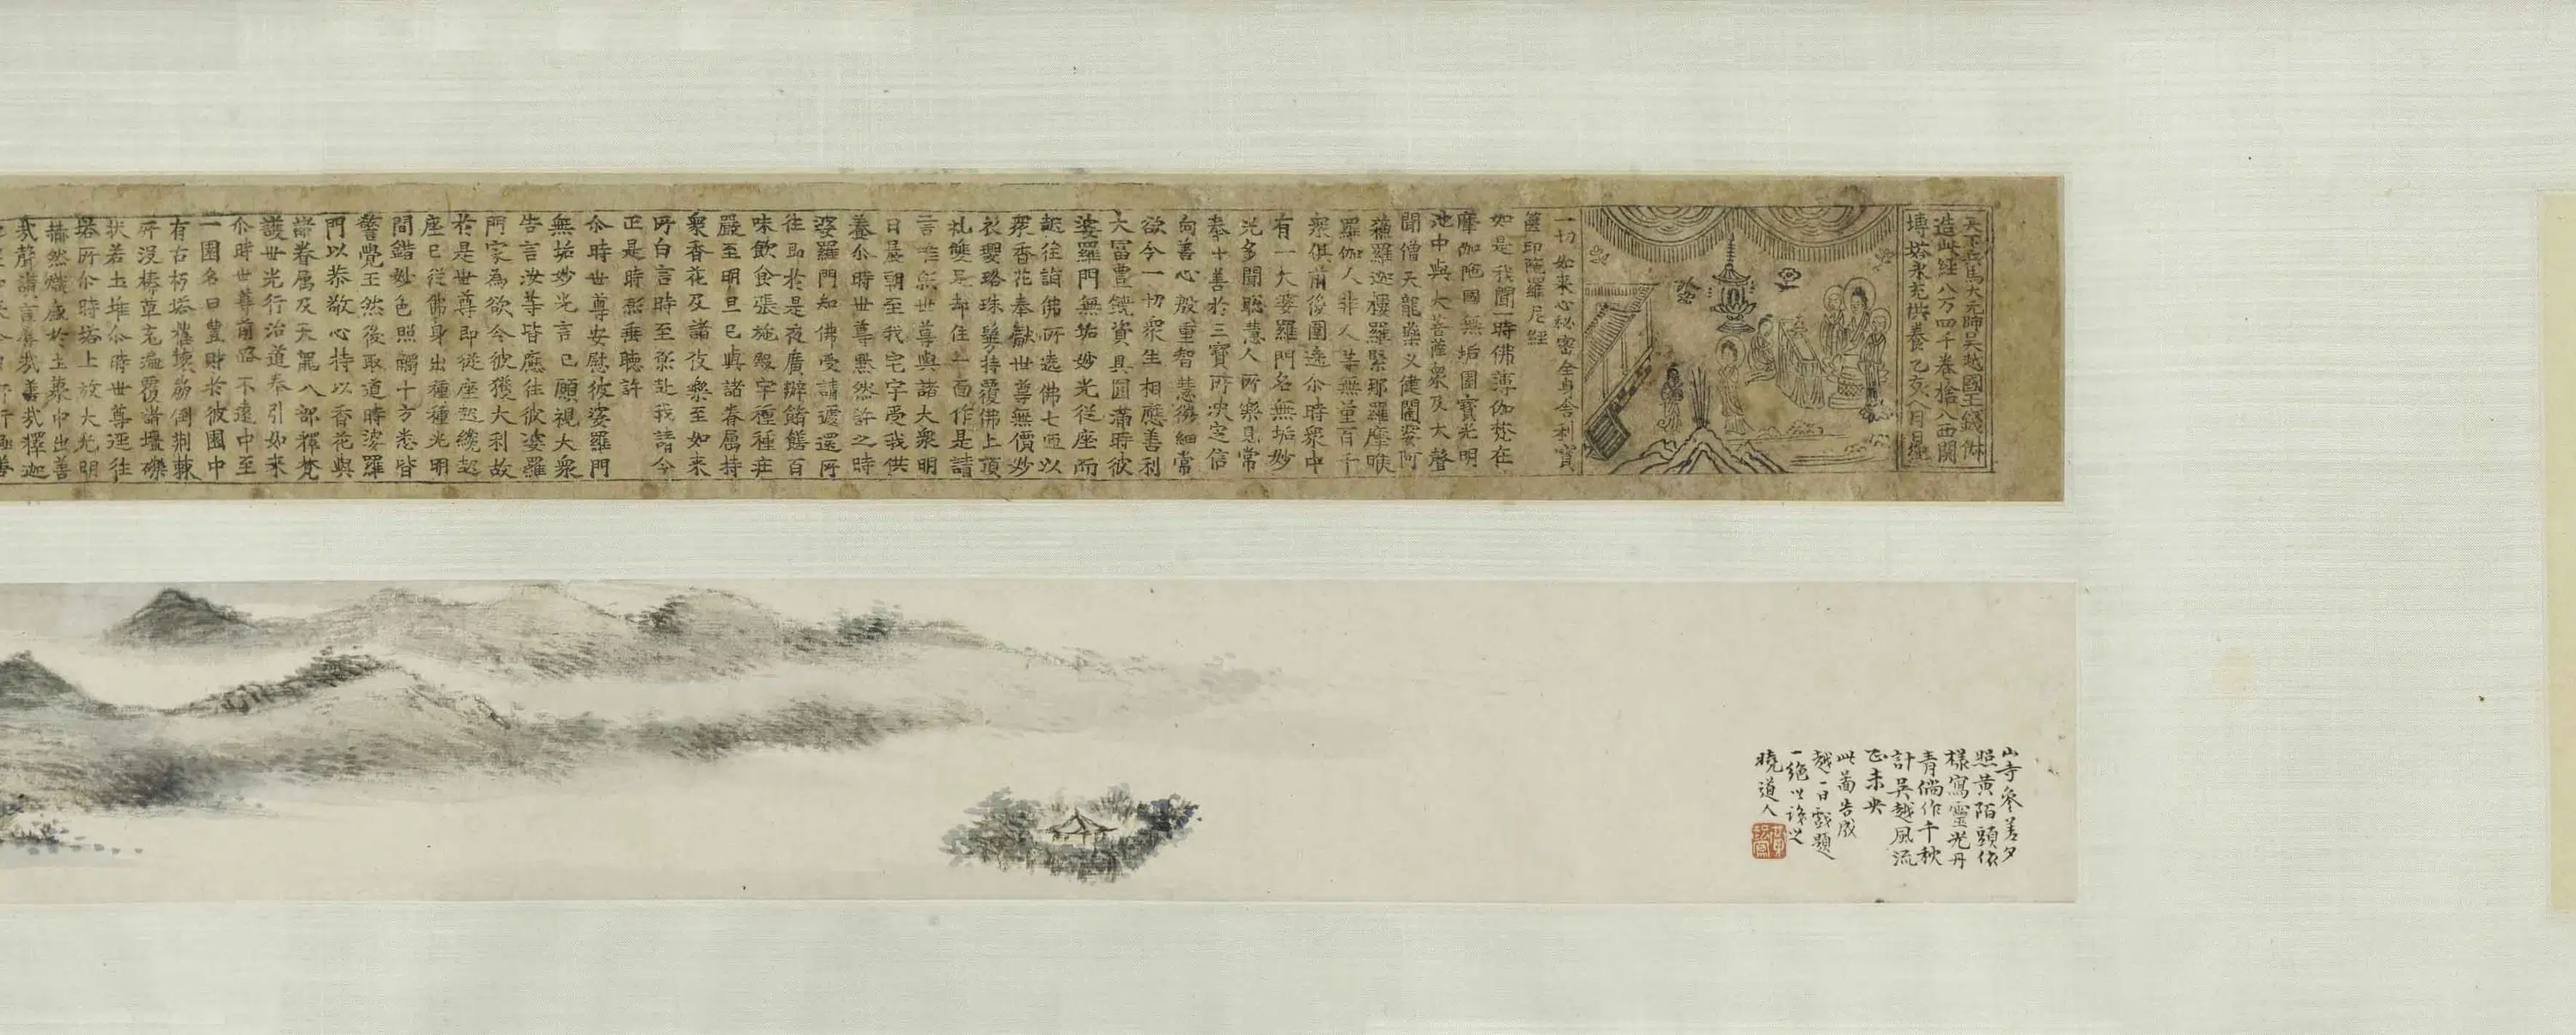 天下兵馬大元帥吳越國王錢俶
造此經八万四千卷捨入西關
塼塔永充供養乙亥八月日紀
一切如来心秘密全身舍利寶
篋印陁羅尼經
如是我聞一時佛薄伽梵在
摩伽陁國無垢園寶光明
池中與大菩薩衆及大聲
聞僧天龍藥叉健闥婆阿
蘓羅迦樓羅緊那羅摩睺
羅伽人非人等無量百千
衆俱前後圍遶尒時衆中
有一大婆羅門名無垢妙
光多聞聦慧人所樂見常
奉十善於三寶所决定信
向善心殷重智慧微細常
欲令一切衆生相應善利
大冨豊饒資具圓滿時彼
婆羅門無垢妙光從座而
起往詣佛所遶佛七匝以
衆香花奉獻世尊無價妙
衣瓔珞珠鬘持覆佛上頂
礼雙足却住一面作是請
言唯願世尊與諸大衆明
日晨朝至我宅宇受我供
養尒時世尊默然許之時
婆羅門知佛受請遽還所
住即於是夜廣辦餚饍百
味飲食張施殿宇種種莊
嚴至明旦已與諸眷屬持
衆香花及諸伎樂至如来
所白言時至願赴我請今
正是時願垂聽許
尒時世尊安慰彼婆羅門
無垢妙光言已顧視大衆
告言汝等皆應往彼婆羅
門家為欲令彼獲大利故
於是世尊即從座起纔起
座已從佛身出種種光明
間錯妙色照觸十方悉皆
警覺王然後取道時婆羅
門以恭敬心持以香花與
諸眷屬及天龍八部釋梵
護世光行治道奉引如来
尒時世尊前路不遠中至
一園名曰豊財於彼園中
有古朽塔摧壞崩倒荊棘
所没榛草充遍覆諸壃礫
狀若土堆尒時世尊逕往
塔所尒時塔上放大光明
赫然熾盛於土聚中出善
哉聲讃言善哉善哉釋迦
山寺參差夕
照黄陌頭依
樣寫靈光丹
青倘作千秋
計吳越風流
正未央
此圖告成
越一日戲題
一絶以誌之
曉道人